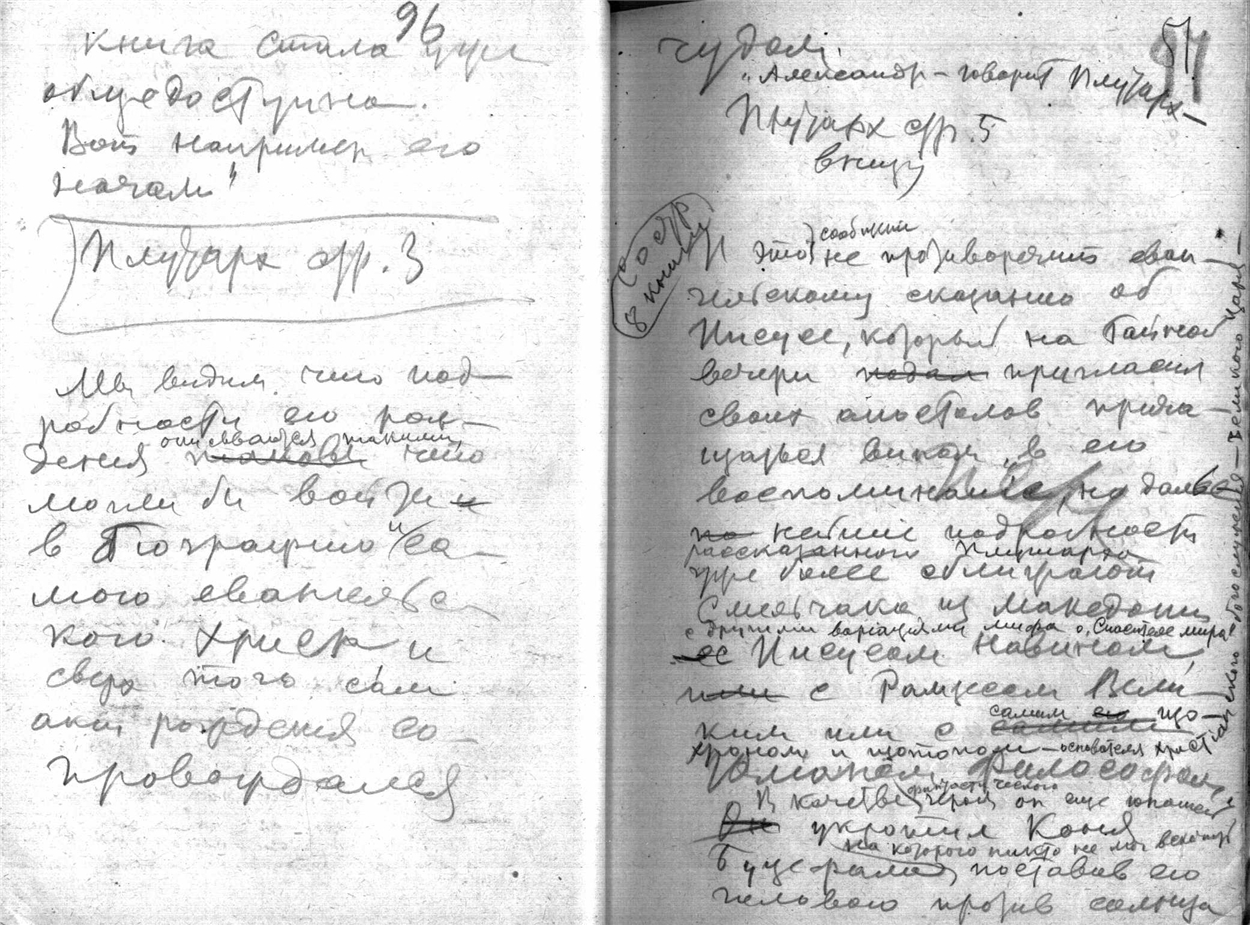 96
книга стала уже
общедоступна.
Вот например его
начало"
Плутарх стр. 3
Мы видим, что под-
робности его рож-
описываются такими,
дения таковы что
могли бы войти и
в биографию и са-
мого евангельс-
кого Христа и
сверх того сам
акт рождения со-
провождался
чудом.
"Александр – говорит Плутарх –
Плутарх стр. 5
внизу
со стр
8 книги
И это сообщение
не противоречит еван-
гельскому сказанию об
Иисусе, который на Тайной
вечери подал пригласил
своих апостолов прича-
щаться вином, в его
воспоминание, но даль
нейшие подробности
рассказанного Плутархом
уже более сближают
Смельчака из Македонии
с другими вариациями мифа о "Спасителе мира"
Иисусом Навином,
или с Рамзесом Вели-
ким или с самим
основателя христианского богослужения – великого царя –
философом,
В качестве героя он еще юношей
Он укротил Коня
на которого никто не мог вскочить
Буцефала, поставив его
головою против солнца